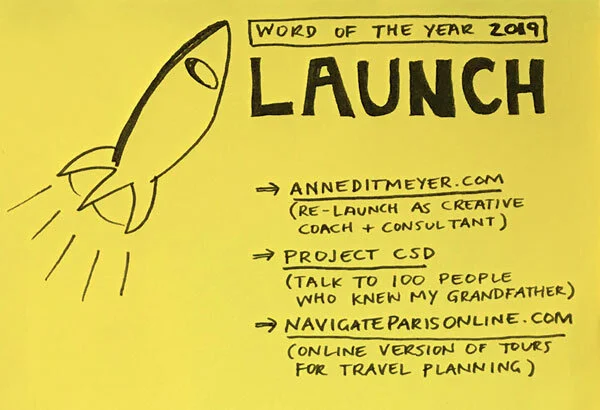 WORD OF THE YEAR 2019
LAUNCH
⇒ ANNEDITMEYER.COM
(RE-LAUNCH AS CREATIVE
COACH + CONSULTANT)
⇒ PROJECT CSD
(TALK TO 100 PEOPLE
WHO KNEW MY GRANDFATHER)
⇒ NAVIGATEPARISONLINE.COM
(ONLINE VERSION OF TOURS
FOR TRAVEL PLANNING)